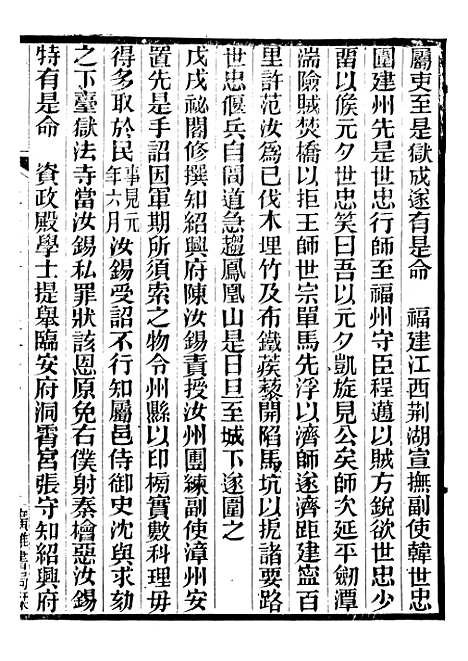 屬吏至是獄成遂有是命　福建江西荆湖宣撫副使韓世忠
圍建州先是世忠行師至福州守臣程邁以賊方銳欲世忠少
留以俟元夕世忠笑曰吾以元夕凱旋見公矣師次延平劒潭
湍險賊焚橋以拒王師世宗單馬先浮以濟師遂濟距建寍百
里許范汝爲已伐木埋竹及布鐵蒺藜開陷馬坑以扼諸要路
世忠偃兵自閒道急趨鳳凰山是日旦至城下遂圍之
戊戌祕閣修撰知紹興府陳汝錫責授汝州團練副使漳州安
置先是手詔因軍期所須索之物令州縣以印榜實數科理毋
得多取於民事見元年六月汝錫受詔不行知屬邑侍御史沈與求劾
之下臺獄法寺當汝錫私罪狀該恩原免右僕射秦檜惡汝錫
特有是命　資政殿學士提舉臨安府洞霄宮張守知紹興府